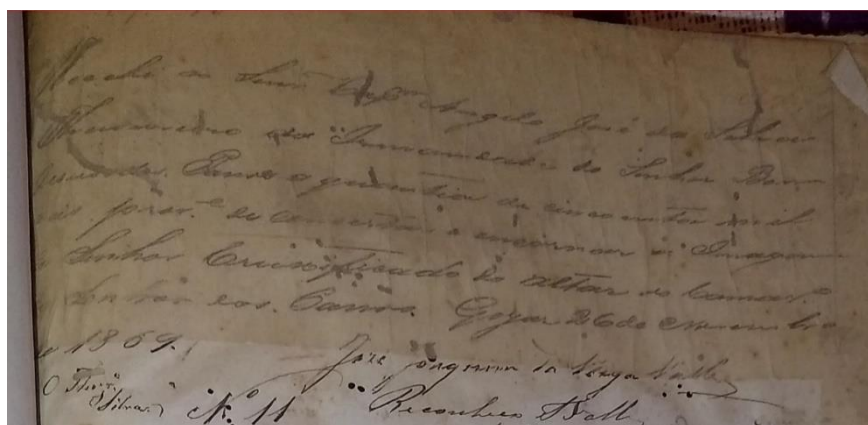 Recebi do Senr. Cap.m Angelo José da Silva
Thesoureiro da Irmandade do Senhor Bom
Jesus dos Passos a quantia de cincoenta mil
reis prov.e de concertar e encarnar a Imagem
do Senhor Crucificado do altar do
Senhor dos Passos. Goyaz 26 de Novembro
de 1869.
José Joaquim da Veiga Valle
O Thesr.
Silva N.o 11 Reconheço